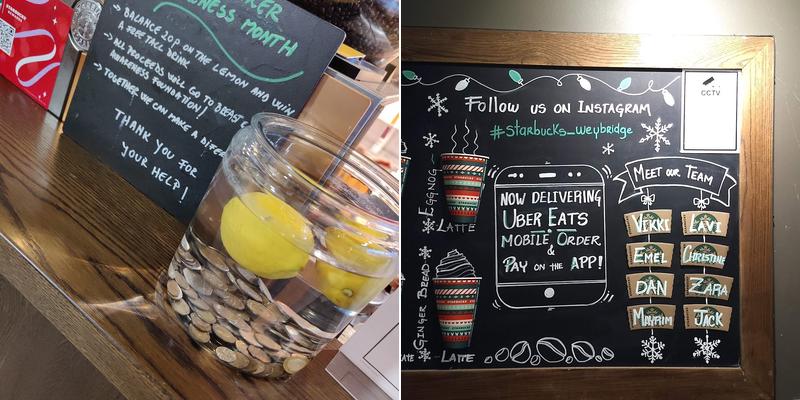 NESS MONTH
→ BALANCE 20P ON THE LEMON AND WIN
A FREE TALL DRINK
→ ALL PROCEEDS WILL GO TO BREAST
AWARENESS FOUNDATION!
→ TOGETHER WE CAN MAKE A DIFFE
THANK YOU FOR
YOUR HELP!
CCTV
FOLLOW US ON INSTAGRAM
#Starbucks_weybridge
EGGNOG
LATTE
GINGER BREAD
LATTE
NOW DELIVERING
UBER EATS
MOBILE ORDER
&
PAY ON THE APP!
MEET OUR TEAM
VIKKI
LAVI
EMEL
CHRISTINE
DAN
ZARA
MAYRIM
JACK